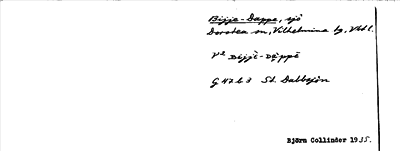 Bijje-Dappe, sjö
Dorotea sn, Vilhelmina tg, Vbtl.
V² Bijjē-Dẹppē
G 47 b 3 St. Dabbsjön
Björn Collinder 1935.